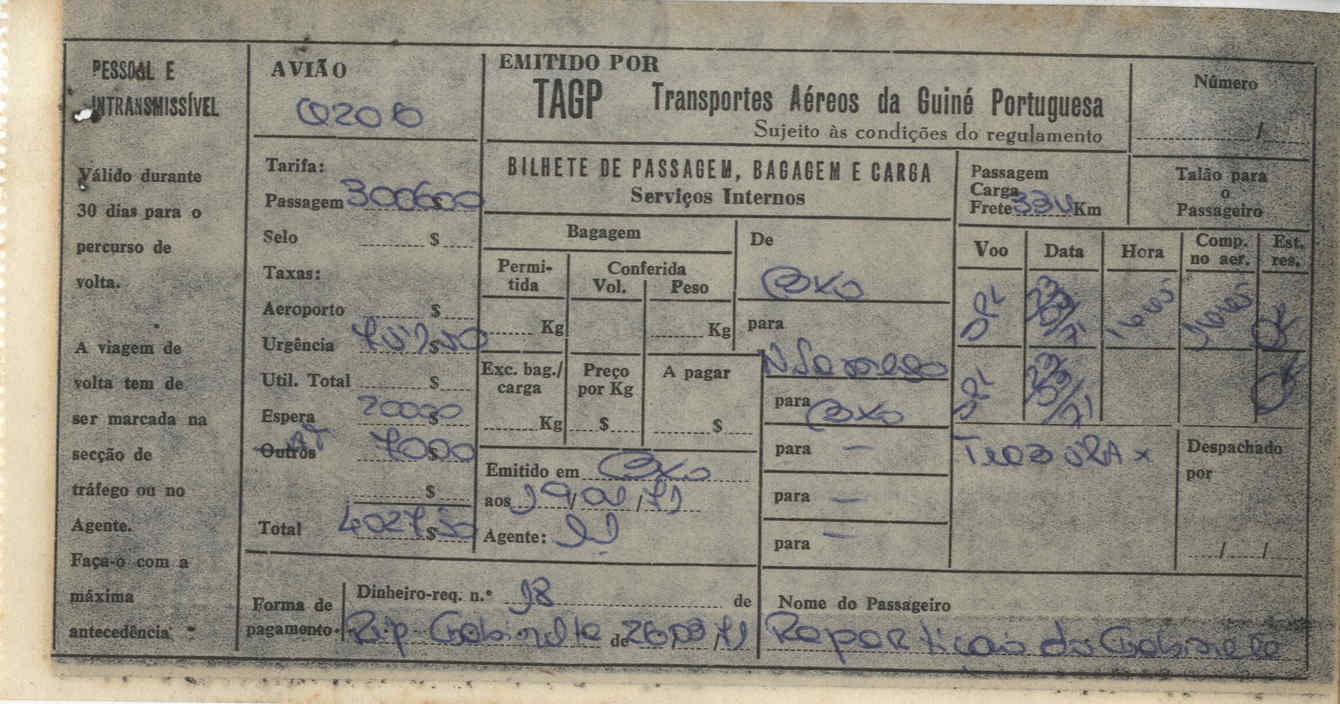 PESSOAL E
INTRANSMISSÍVEL
Válido durante
30 dias para o
percurso de
volta.
A viagem de
volta tem de
ser marcada na
secção de
tráfego ou no
Agente.
Faça-o com a
máxima
antecedência
AVIÃO
Tarifa:
Passagem 300600
Selo $
Taxas:
Aeroporto $
Urgência $
Util. Total $
Espera 20000
Outros AT 7000
$
Total 4027$50
EMITIDO POR
TAGP Transportes Aéreos da Guiné Portuguesa
Sujeito às condições do regulamento
BILHETE DE PASSAGEM, BAGAGEM E CARGA
Serviços Internos
Bagagem
Permi-
tida
Conferida
Vol. Peso
Kg Kg
Exc. bag./
carga
Preço
por Kg
A pagar
Kg $ $
Emitido em BXO
aos
Agente:
De
BXO
para
para
BXO
para —
para —
para —
Número
/
Passagem
Carga
Frete Km
Talão para
o
Passageiro
Voo Data Hora Comp.
no aer. Est.
res.
1605 1605 OK
OK
Despachado
por
/ /
Forma de
pagamento.
Dinheiro-req. n.º 18 de
Rep. Gabinete de
Nome do Passageiro
Repartição do Gabinete